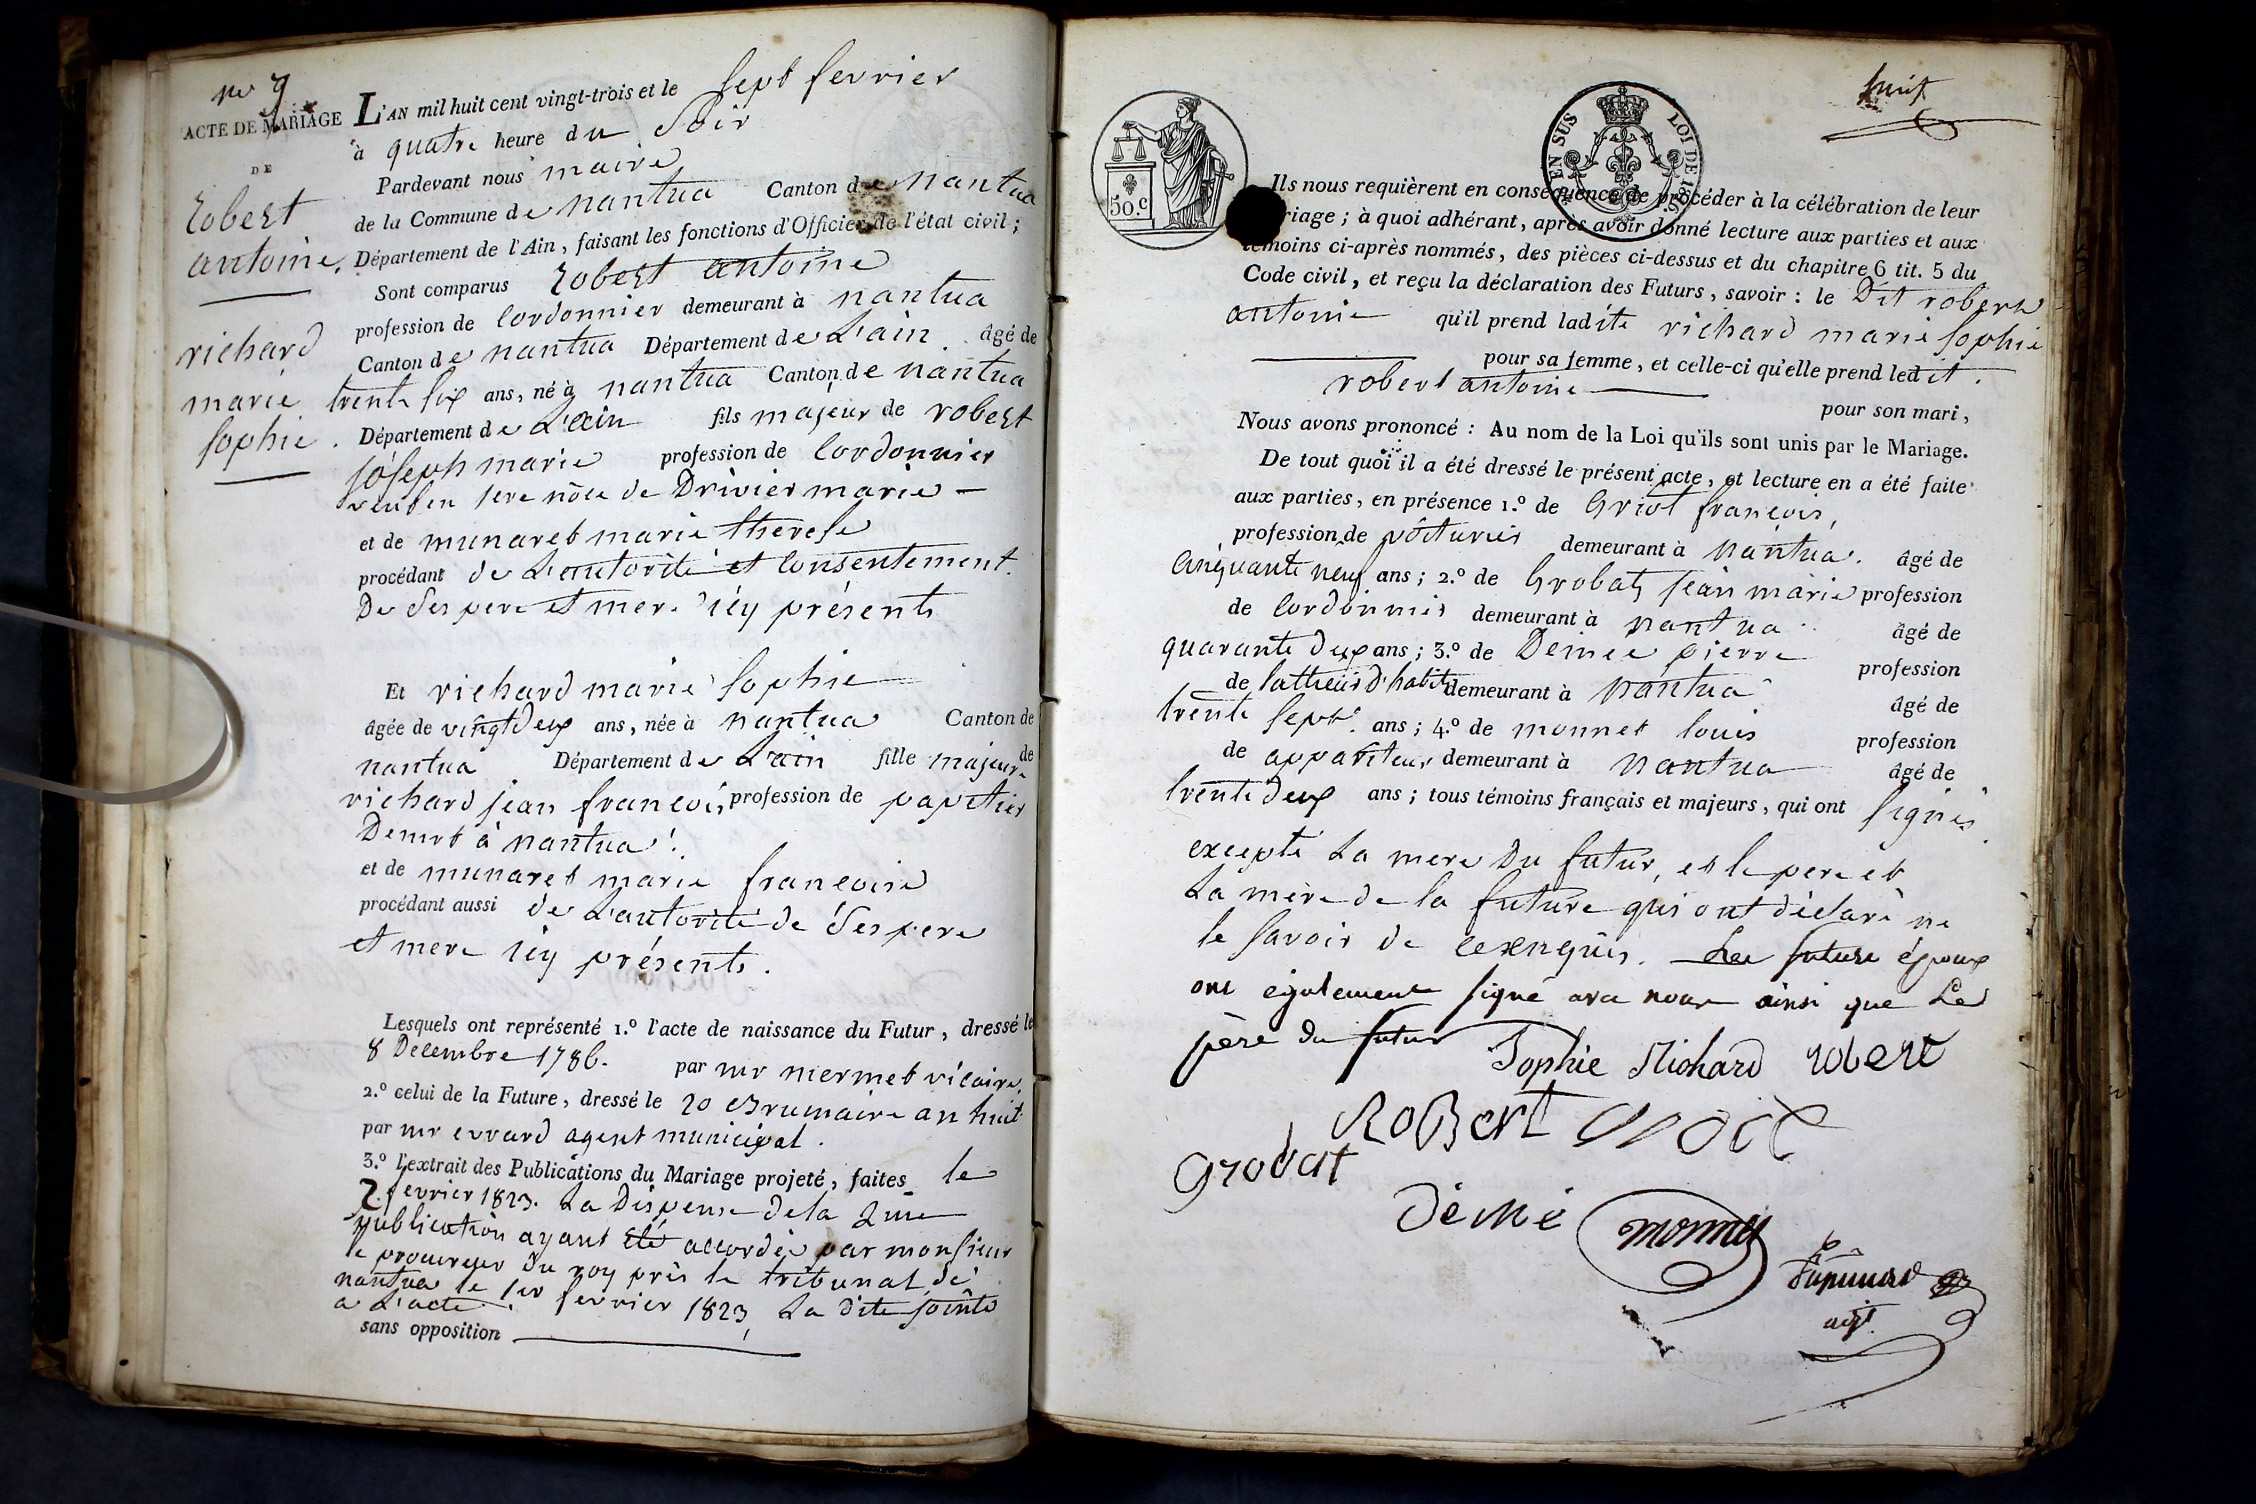 no 9
ACTE DE MARIAGE
DE
robert
antoine.
richard
marie
sophie.
L'AN mil huit cent vingt-trois et le sept fevrier
à quatre heure du soir
Pardevant nous maire
de la Commune de nantua Canton de nantua
Département de l'Ain, faisant les fonctions d'Officier de l'état civil;
Sont comparus robert antoine
profession de cordonnier demeurant à nantua
Canton de nantua Département de L'ain. âgé de
trente six ans, né à nantua Canton de nantua
Département de L'ain fils majeur de robert
joseph marie profession de cordonnier
veuf en 1ere nôce de Drivier marie
et de munaret marie therese
procédant de L'autorité et consentement.
De ses pere et mere icy présents
Et richard marie sophie
âgée de vingt deux ans, née à nantua Canton de
nantua Département de L'ain fille majeure de
richard jean francois profession de papetier
Demt à nantua.
et de munaret marie francoise
procédant aussi de L'autorité de ses pere
et mere icy présents.
Lesquels ont représenté 1.º l'acte de naissance du Futur, dressé le
8 Decembre 1786. par mr mermet vicaire,
2.º celui de la Future, dressé le 20 Brumaire an huit
par mr evrard agent municipal.
3.º l'extrait des Publications du Mariage projeté, faites le
2 fevrier 1823. La Dispense de la 2me
publication ayant été accordée par monsieur
le procureur du roy près le tribunal de
nantua le 1er fevrier 1823, La dite jointe
a L'acte.
sans opposition
huit
50.c
EN SUS
LOI DE 1816.
Ils nous requièrent en conséquence de procéder à la célébration de leur
riage; à quoi adhérant, après avoir donné lecture aux parties et aux
témoins ci-après nommés, des pièces ci-dessus et du chapitre 6 tit. 5 du
Code civil, et reçu la déclaration des Futurs, savoir: le Dit robert
antoine qu'il prend ladite richard marie sophie
pour sa femme, et celle-ci qu'elle prend ledit.
robert antoine pour son mari,
Nous avons prononcé: Au nom de la Loi qu'ils sont unis par le Mariage.
De tout quoi il a été dressé le présent acte, et lecture en a été faite
aux parties, en présence 1.º de Griot francois,
profession de voiturier demeurant à nantua. âgé de
cinquante neuf ans; 2.º de Grobat jean marie profession
de cordonnier demeurant à nantua âgé de
quarante deux ans; 3.º de pierre profession
de tallieur d'habits demeurant à nantua âgé de
trente sept. ans; 4.º de monnet louis profession
de appariteur demeurant à nantua âgé de
trente deux ans; tous témoins français et majeurs, qui ont signés
excepté La mere Du futur, et le pere et
La mère de la future qui ont déclaré ne
le savoir de ce enquis. Les future époux
ont également signé avec nous ainsi que Le
père du futur
Sophie Richard robert
RoBert
grobat
démé
monnet
adjt.